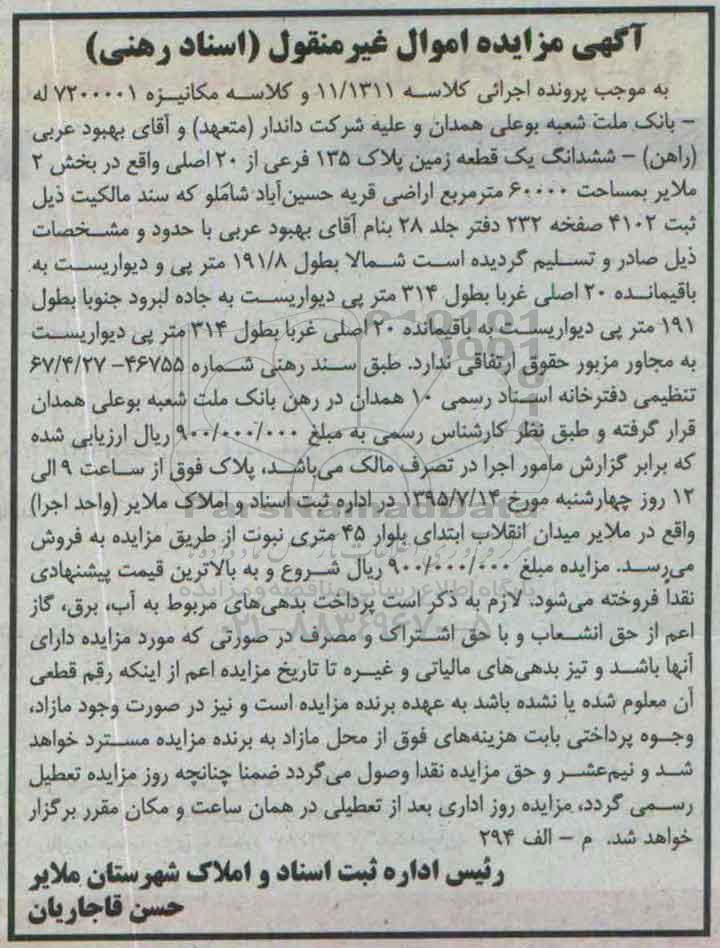 آگهی مزایده اموال غیرمنقول (اسناد رهنی)
به موجب پرونده اجرائی کلاسه ۱۱/۱۳۱۱ و کلاسه مکانیزه ۷۲۰۰۰۰۱ له
- بانک ملت شعبه بوعلی همدان و علیه شرکت داندار (متعهد) و آقای بهبود عربی
(راهن) - ششدانگ یک قطعه زمین پلاک ۱۳۵ فرعی از ۲۰ اصلی واقع در بخش ۲
ملایر بمساحت ۶۰۰۰۰ مترمربع اراضی قریه حسین‌آباد شاملو که سند مالکیت ذیل
ثبت ۴۱۰۲ صفحه ۲۳۲ دفتر جلد ۲۸ بنام آقای بهبود عربی با حدود و مشخصات
ذیل صادر و تسلیم گردیده است شمالا بطول ۱۹۱/۸ متر پی و دیواریست به
باقیمانده ۲۰ اصلی غربا بطول ۳۱۴ متر پی دیواریست به جاده لبرود جنوبا بطول
۱۹۱ متر پی دیواریست به باقیمانده ۲۰ اصلی غربا بطول ۳۱۴ متر پی دیواریست
به مجاور مزبور حقوق ارتفاقی ندارد. طبق سند رهنی شماره ۴۶۷۵۵- ۶۷/۴/۲۷
تنظیمی دفترخانه اسناد رسمی ۱۰ همدان در رهن بانک ملت شعبه بوعلی همدان
قرار گرفته و طبق نظر کارشناس رسمی به مبلغ ۹۰۰/۰۰۰/۰۰۰ ریال ارزیابی شده
که برابر گزارش مامور اجرا در تصرف مالک می‌باشد، پلاک فوق از ساعت ۹ الی
۱۲ روز چهارشنبه مورخ ۱۳۹۵/۷/۱۴ در اداره ثبت اسناد و املاک ملایر (واحد اجرا)
واقع در ملایر میدان انقلاب ابتدای بلوار ۴۵ متری نبوت از طریق مزایده به فروش
می‌رسد. مزایده مبلغ ۹۰۰/۰۰۰/۰۰۰ ریال شروع و به بالاترین قیمت پیشنهادی
نقداً فروخته می‌شود. لازم به ذکر است پرداخت بدهی‌های مربوط به آب، برق، گاز
اعم از حق انشعاب و یا حق اشتراک و مصرف در صورتی که مورد مزایده دارای
آنها باشد و نیز بدهی‌های مالیاتی و غیره تا تاریخ مزایده اعم از اینکه رقم قطعی
آن معلوم شده یا نشده باشد به عهده برنده مزایده است و نیز در صورت وجود مازاد،
وجوه پرداختی بابت هزینه‌های فوق از محل مازاد به برنده مزایده مسترد خواهد
شد و نیم‌عشر و حق مزایده نقدا وصول می‌گردد ضمنا چنانچه روز مزایده تعطیل
رسمی گردد، مزایده روز اداری بعد از تعطیلی در همان ساعت و مکان مقرر برگزار
خواهد شد. م - الف ۲۹۴
رئیس اداره ثبت اسناد و املاک شهرستان ملایر
حسن قاجاریان
ParsNamadData
۰۲۱-۸۸۳۴۹۶۷۰-۵